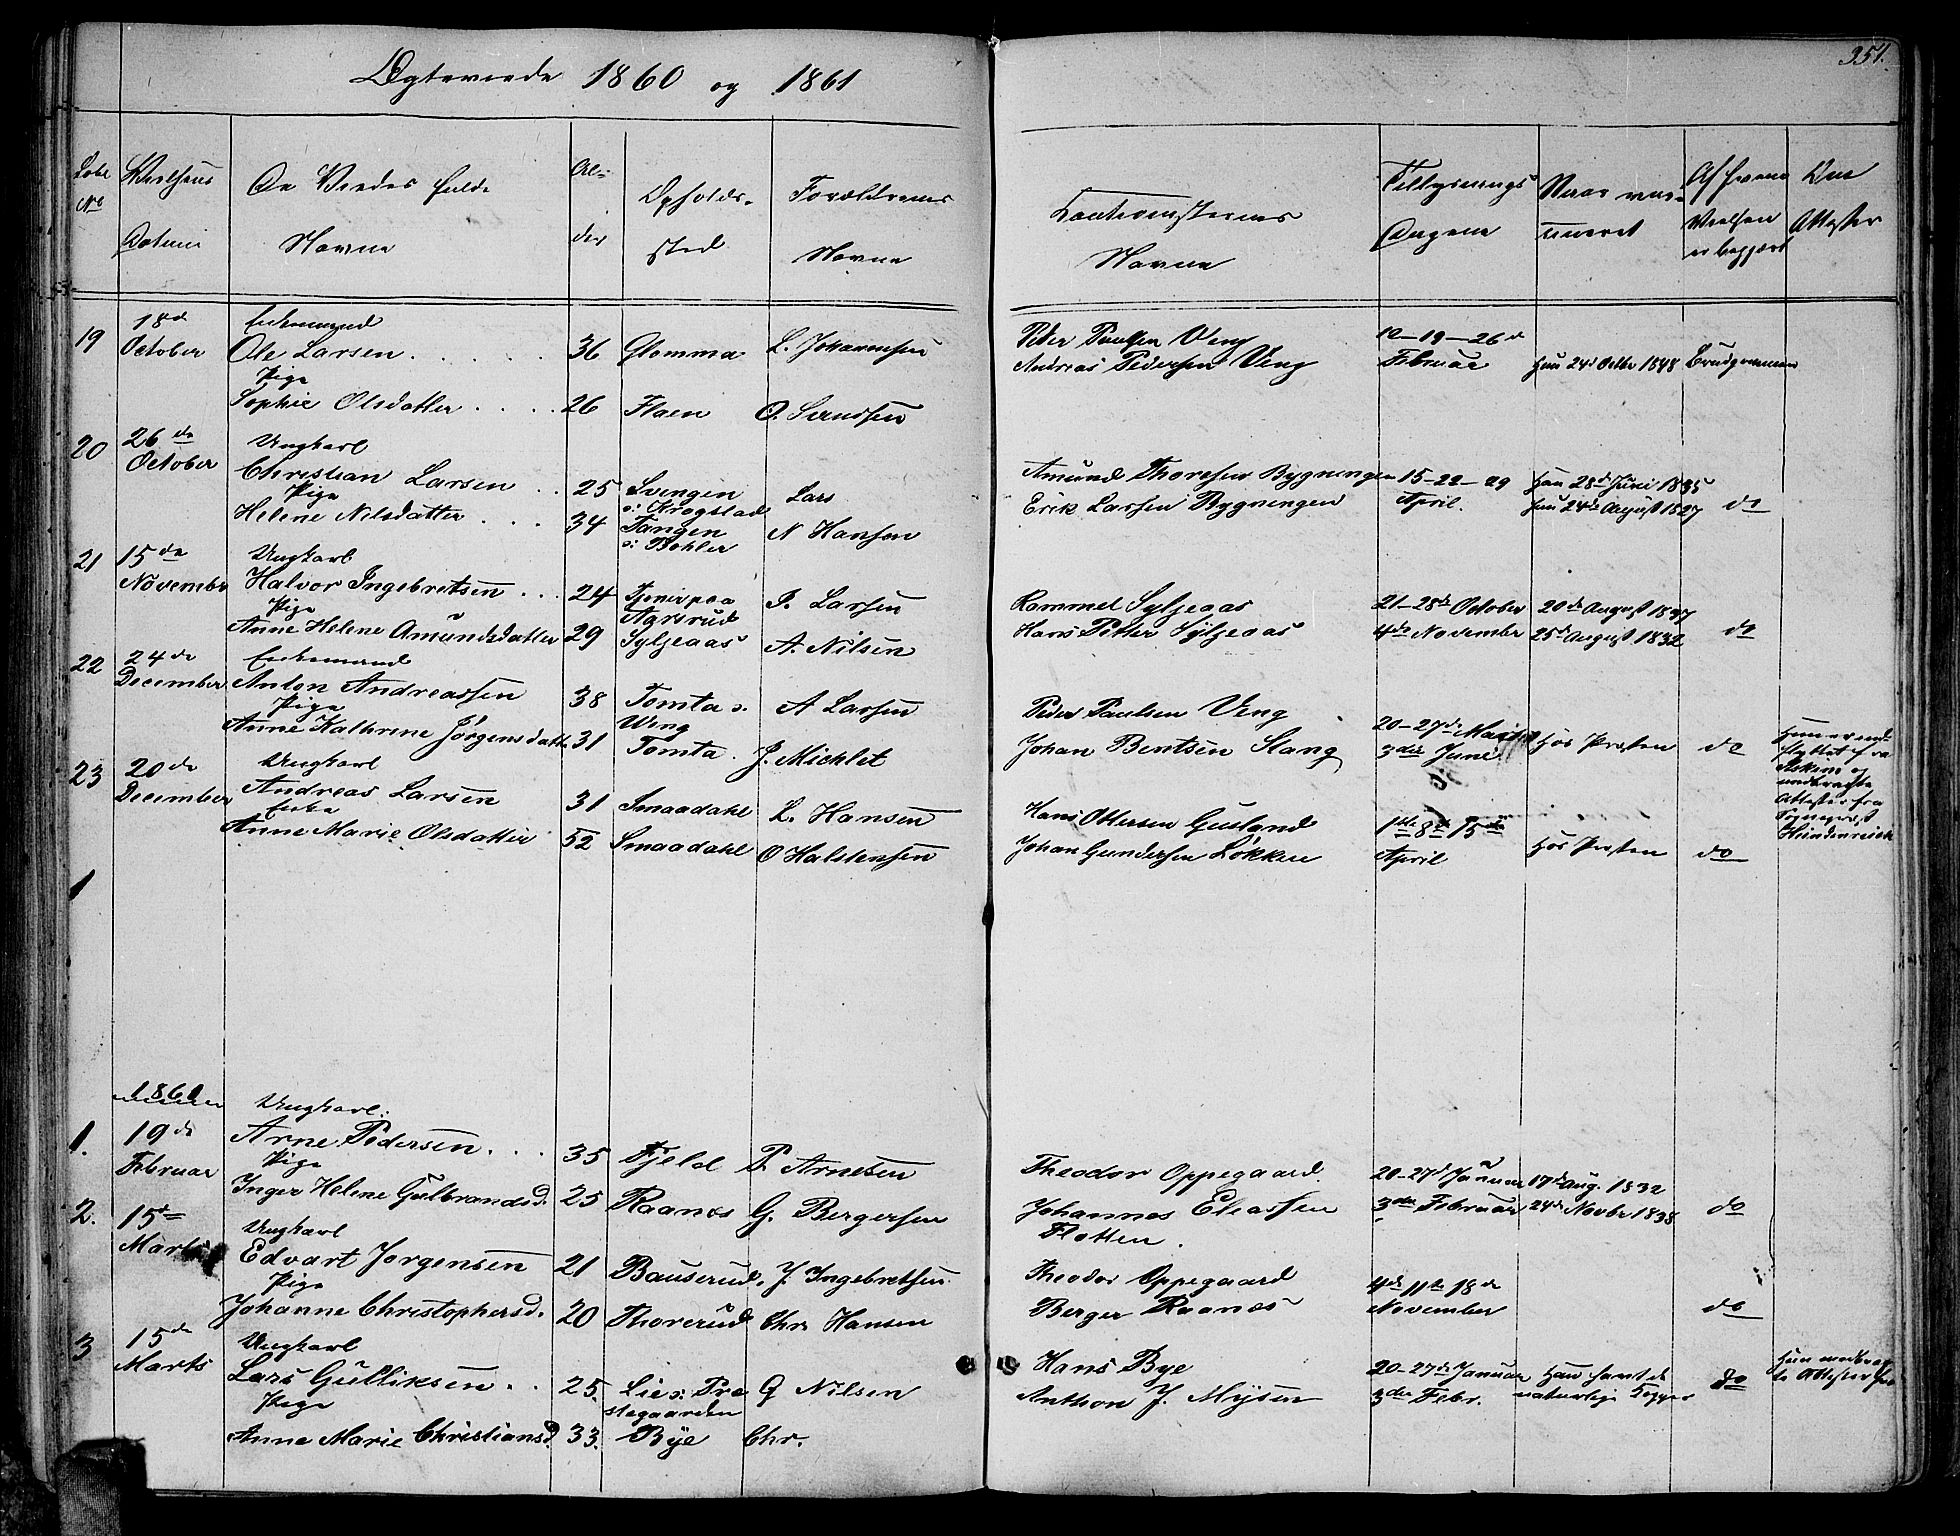 Ægteviede 1860 og 1861
351.
Løbe No
Vielsens Datum
De Viedes fulde Navne
Alder
Opholdssted
Forældrenes Navne
Cautionisternes Navne
Tillysnings Dagene
Naar vaccineret
Af hvem Vielsen er begjært
Attester
19
18de October
Enkemand
Ole Larsen 36 Glomma L. Johannesen
Pige
Sophie Olsdatter 26 Flaen O.
Peder Paulsen Veng
Andreas Pedersen Veng
12-19-26de Februar
hun 24de Octbr 1848
Brudgommen
20
26de October
Ungkarl
Christian Larsen 25 Svingen o: Krogstad Lars
Pige
Helene Nilsdatter 34 Tangen o: Bøhler N Hansen
Amund Thoresen Bygningen
Erik Larsen Bygningen
15-22-29 April.
Han 28de Juni 1835
hun 24de August 1827
do
21
15de November
Ungkarl
Halvor Ingebretsen 24 Agsrud I. Larsen
Pige
Anne Helene Amundsdatter 29 Syljeaas A. Nilsen
Rommel Syljeaas
Hans Petter Syljeaas
21-28de October
4de November
20de August 1837
25de August 1832
do
22
24de December
Enkemand
Anton Andreassen 38 Tomta o: Weng A Larsen
Pige
Anne Kathrine Jørgensdatt. 31 Tomta. J. Michlet
Peder Paulsen Veng
Johan Bentsen Slang
20-27de Mai
3die Juni
Hos Præsten
do
Hun er indflyttet fra Askim og medbragte Attester fra Sognepræst
23
20de December
Ungkarl
Andreas Larsen 31 Smaadahl L. Hansen
Enke
Anne Marie Olsdatter 52 Smaadahl O Halstensen
Hans Ottersen Gusland
Johan Gundersen Løkken
1ste 8de 15de April
Hos Præsten
do
1
1861
1.
19de Februar
Ungkarl:
Arne Pedersen 35 Fjeld P. Arnesen
Pige
Inger Helene Gulbrandsd. 25 Raanes G. Bergersen
Theodor Oppegaard.
Johannes Eliassen Flotten.
20-27de Januar
3die Februar
17de Aug. 1832
24de Novbr 1838
do
2.
15de Marts
Ungkarl
Edvart Jorgensen 21 Bauserud. J. Ingebretsen
Pige
Johanne Christophersd. 20 Thorerud Chr. Hansen
Theodor Oppegaard
Berger Raanes
4de 11te 18de November
do
3
15de Marts
Ungkarl
Lars Gulliksen 25. Lie o: Prestegaarden G Nilsen
Pige
Anne Marie Christiansd. 33. Bye Chr.
Hans Bye
Anthon J. Mysen
20-27de Januar
3die Febr.
Han havt de naturlige Kopper
do
Hun medbragte Attester